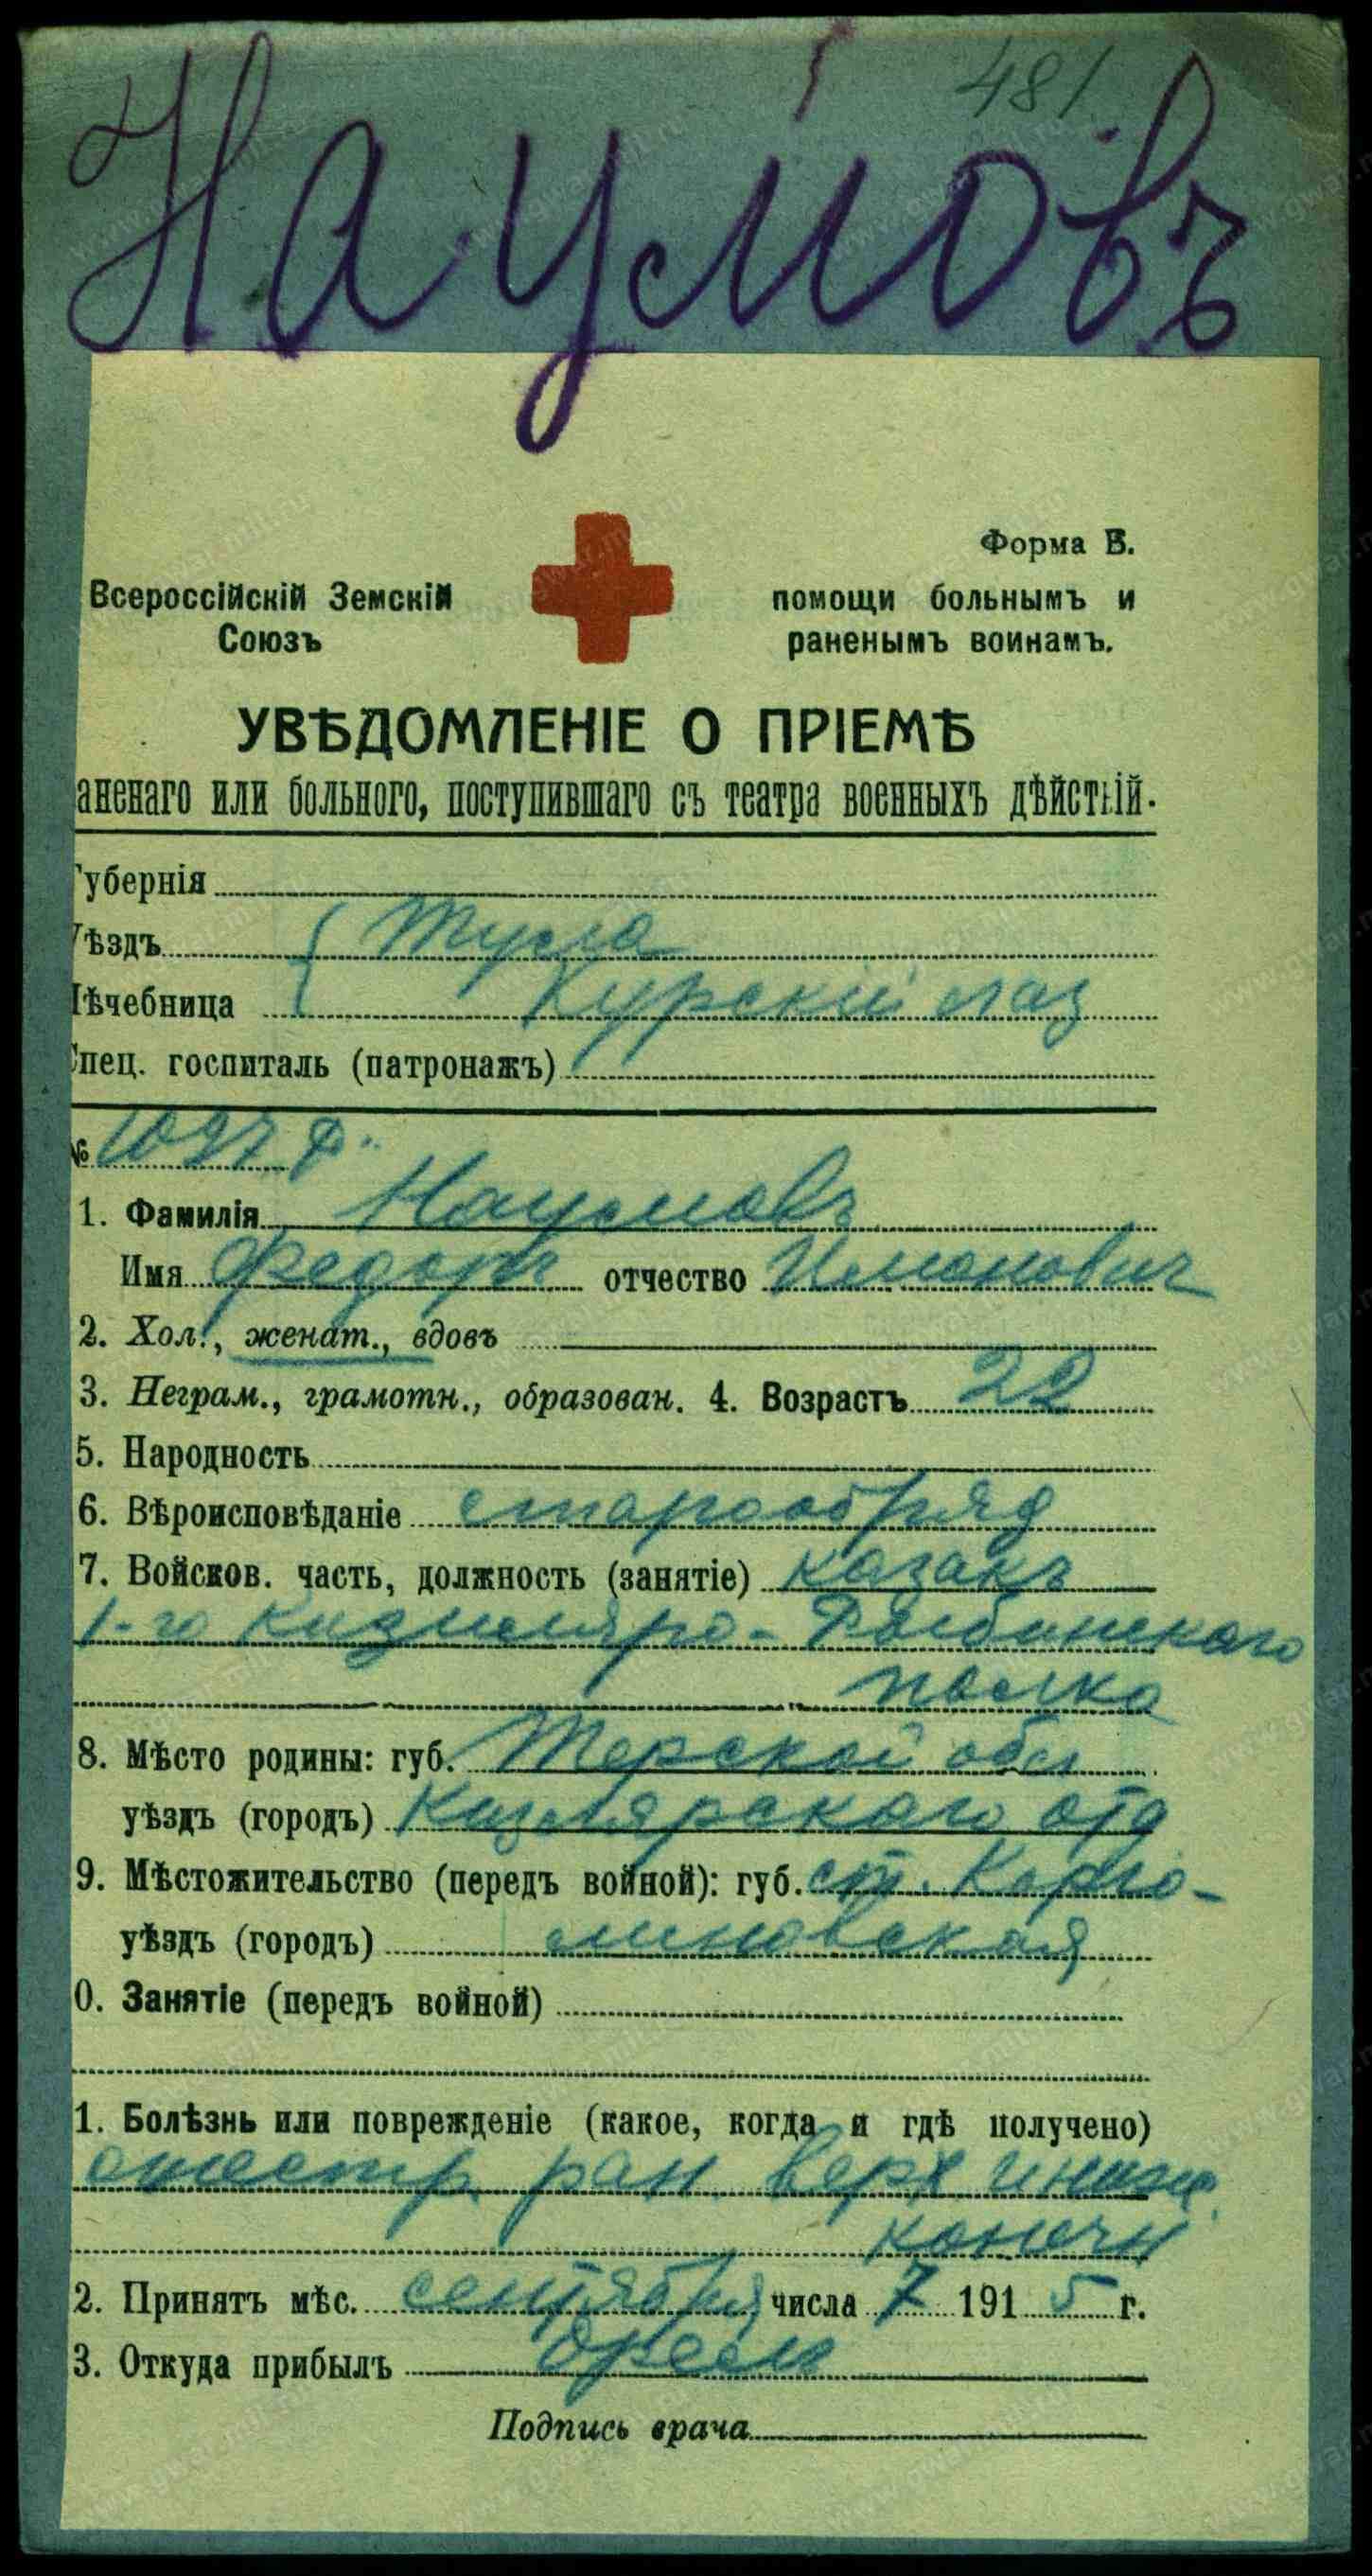 481
Наумовъ
Форма В.
Всероссійскій Земскій помощи больнымъ и
Союзъ раненымъ воинамъ.
УВѢДОМЛЕНІЕ О ПРІЕМѢ
аненаго или больного, поступившаго съ театра военныхъ дѣйствій.
Губернія
Уѣздъ Тула
Лѣчебница Курскій лаз
Спец. госпиталь (патронажъ)
№
1. Фамилія Наумовъ
Имя Федоръ отчество
2. Хол., женат., вдовъ
3. Неграм., грамотн., образован. 4. Возрастъ 22
5. Народность
6. Вѣроисповѣданіе старообряд
7. Войсков. часть, должность (занятіе) казакъ
1-го Кизляро-Гребенскаго
полка
8. Мѣсто родины: губ. Терской обл
уѣздъ (городъ) Кизлярскаго отд
9. Мѣстожительство (передъ войной): губ. ст. Карго-
уѣздъ (городъ) линовская
0. Занятіе (передъ войной)
1. Болѣзнь или поврежденіе (какое, когда и гдѣ получено)
огнестр. ран. верх. и нижн.
конечн
2. Принятъ мѣс. сентября числа 7 1915 г.
3. Откуда прибылъ Орелъ
Подпись врача